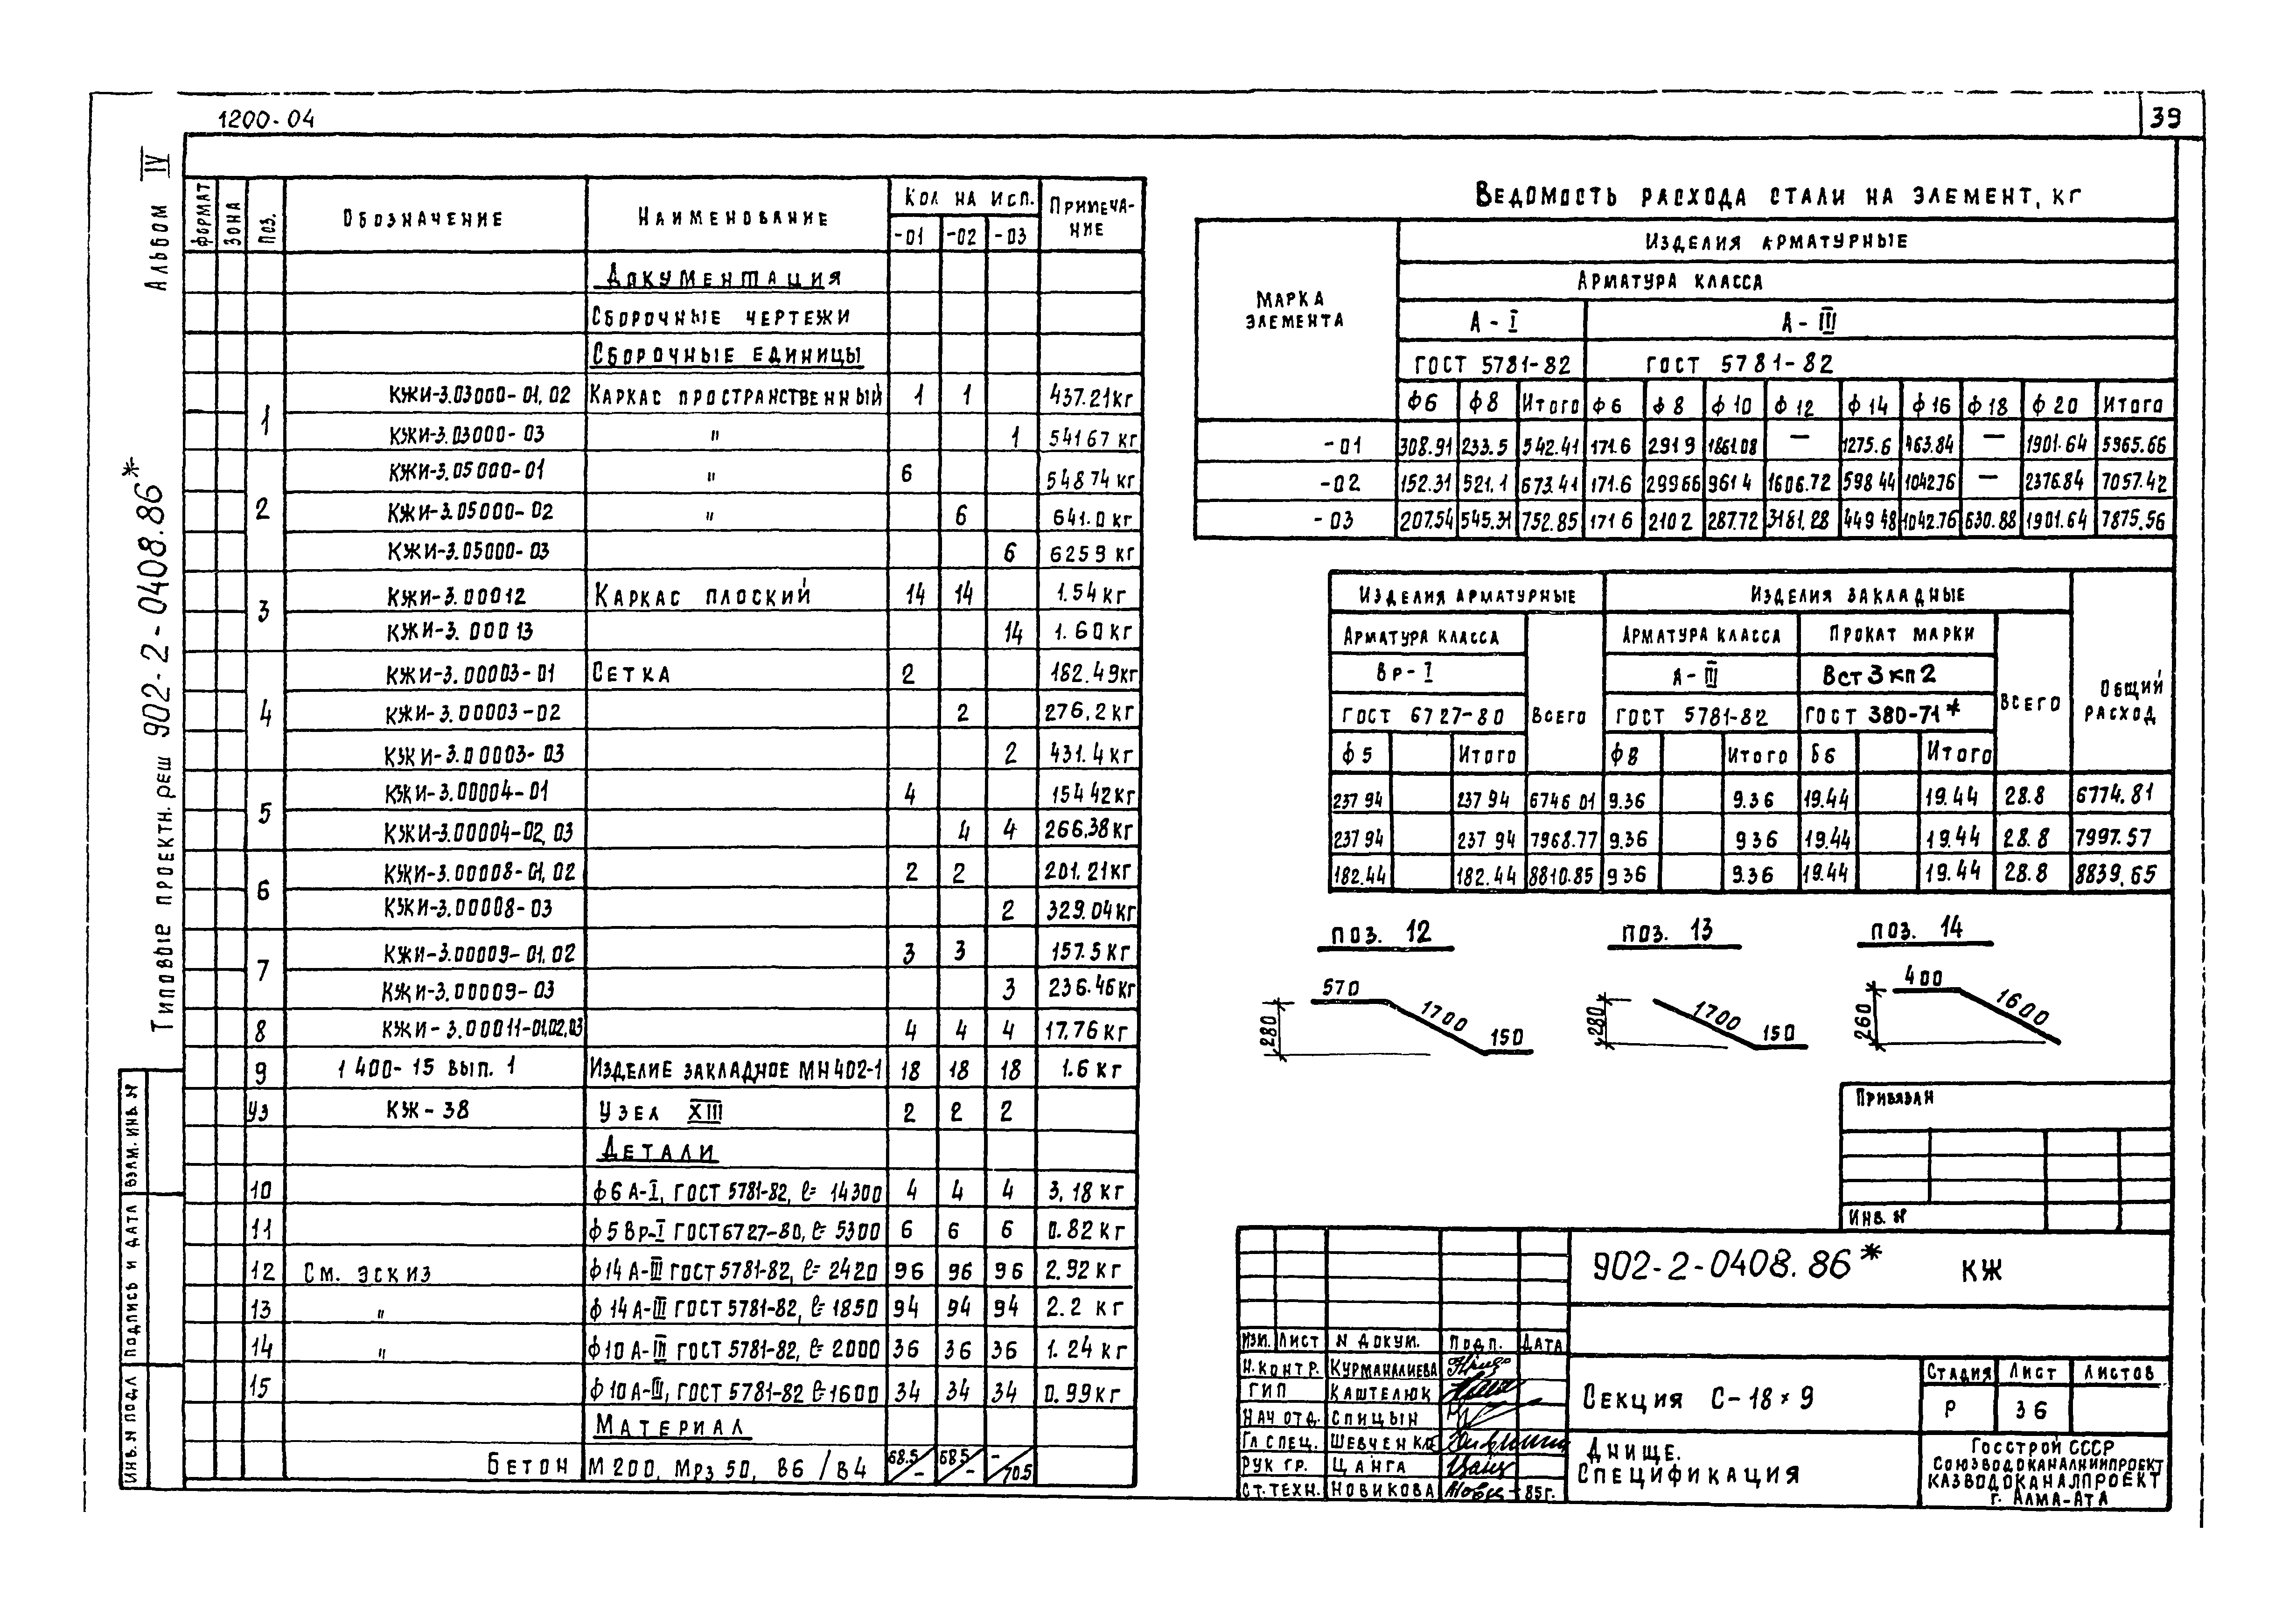 1200-04
39
Альбом IV
Типовые проектн. реш 902-2-0408.86*
ВЗАМ. ИНВ. N
ПОДПИСЬ И ДАТА
ИНВ. N ПОДЛ
ФОРМАТ ЗОНА ПОЗ. ОБОЗНАЧЕНИЕ НАИМЕНОВАНИЕ КОЛ НА ИСП. ПРИМЕЧА-
НИЕ
-01 -02 -03
ДОКУМЕНТАЦИЯ
СБОРОЧНЫЕ ЧЕРТЕЖИ
СБОРОЧНЫЕ ЕДИНИЦЫ
1 КЖИ-3.03000-01,02 КАРКАС ПРОСТРАНСТВЕННЫЙ 1 1 437.21кг
КЖИ-3.03000-03 " 1 541 67 кг
2 КЖИ-3.05000-01 " 6 548 74 кг
КЖИ-3.05000-02 " 6 641.0 кг
КЖИ-3.05000-03 6 625 9 кг
3 КЖИ-3.00012 КАРКАС ПЛОСКИЙ 14 14 1.54 кг
КЖИ-3.00013 14 1.60 кг
4 КЖИ-3.00003-01 СЕТКА 2 182.49кг
КЖИ-3.00003-02 2 276,2 кг
КЖИ-3.00003-03 2 431.4 кг
5 КЖИ-3.00004-01 4 154 42 кг
КЖИ-3.00004-02,03 4 4 266.38 кг
6 КЖИ-3.00008-01,02 2 2 201.21кг
КЖИ-3.00008-03 2 329.04 кг
7 КЖИ-3.00009-01,02 3 3 157.5 кг
КЖИ-3.00009-03 3 236.46 кг
8 КЖИ-3.00011-01,02,03 4 4 4 17.76 кг
9 1400-15 вып. 1 ИЗДЕЛИЕ ЗАКЛАДНОЕ МН402-1 18 18 18 1.6 кг
Уз КЖ-38 УЗЕЛ XIII 2 2 2
ДЕТАЛИ
10 ф6 А-I, ГОСТ 5781-82, ℓ= 14300 4 4 4 3.18 кг
11 ф5 Вр-I ГОСТ6727-80, ℓ= 5300 6 6 6 0.82 кг
12 См. ЭСКИЗ ф14 А-III ГОСТ 5781-82, ℓ= 2420 96 96 96 2.92 кг
13 " ф14 А-III ГОСТ 5781-82, ℓ= 1850 94 94 94 2.2 кг
14 " ф10 А-III ГОСТ 5781-82, ℓ= 2000 36 36 36 1.24 кг
15 ф10 А-III, ГОСТ 5781-82 ℓ=1600 34 34 34 0.99 кг
МАТЕРИАЛ
БЕТОН М200, Мрз 50, В6 / В4 68.5/- 68.5/- -/70.5
ВЕДОМОСТЬ РАСХОДА СТАЛИ НА ЭЛЕМЕНТ, КГ
МАРКА
ЭЛЕМЕНТА
ИЗДЕЛИЯ АРМАТУРНЫЕ
АРМАТУРА КЛАССА
А-I А-III
ГОСТ 5781-82 ГОСТ 5781-82
ф6 ф8 Итого ф6 ф8 ф10 ф12 ф14 ф16 ф18 ф20 Итого
-01 308.91 233.5 542.41 171.6 291 9 1861.08 — 1275.6 463.84 — 1901.64 5965.66
-02 152.31 521.1 673.41 171.6 299 66 961 4 1606.72 598 44 1042 76 — 2376.84 7057.42
-03 207.54 545.31 752.85 171 6 210 2 287.72 3181.28 449 48 1042.76 630.88 1901.64 7875.56
ИЗДЕЛИЯ АРМАТУРНЫЕ ИЗДЕЛИЯ ЗАКЛАДНЫЕ ОБЩИЙ
РАСХОД
АРМАТУРА КЛАССА ВСЕГО АРМАТУРА КЛАССА ПРОКАТ МАРКИ ВСЕГО
Вр-I А-III Вст3кп2
ГОСТ 6727-80 ГОСТ 5781-82 ГОСТ 380-71*
ф5 Итого ф8 Итого δ6 Итого
237 94 237 94 6746 01 9.36 9.36 19.44 19.44 28.8 6774.81
237 94 237 94 7968.77 9.36 9 36 19.44 19.44 28.8 7997.57
182.44 182.44 8810.85 9 36 9.36 19.44 19.44 28.8 8839,65
ПОЗ. 12 ПОЗ. 13 ПОЗ. 14
570 1700 150 280
1700 150 280
400 1600 260
ПРИВЯЗАН
ИНВ. N
902-2-0408.86* КЖ
ИЗМ. ЛИСТ N ДОКУМ. ПОДП. ДАТА
Н.КОНТР. КУРМАНАЛИЕВА
ГИП КАШТЕЛЮК
НАЧ ОТД. СПИЦЫН
ГЛ СПЕЦ. ШЕВЧЕНКО
РУК ГР. ЦАНГА
СТ.ТЕХН. НОВИКОВА 85г.
СЕКЦИЯ С-18×9
СТАДИЯ ЛИСТ ЛИСТОВ
Р 36
ДНИЩЕ.
СПЕЦИФИКАЦИЯ
ГОССТРОЙ СССР
СОЮЗВОДОКАНАЛНИИПРОЕКТ
КАЗВОДОКАНАЛПРОЕКТ
г. АЛМА-АТА